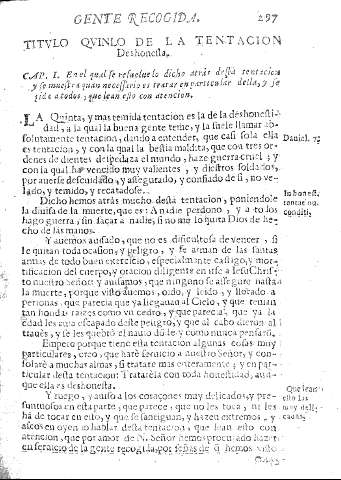 GENTE RECOGIDA. 297
TITVLO QVINLO DE LA TENTACION
Deshonesta.
CAP. I. En el qual se resuelue lo dicho atràs desta tentacion
y se muestra quan necessario es tratar en particular della, y se
pide a todos, que lean esto con atencion.
LA Quinta, y mas temida tentacion es la de la deshonesti-
dad, a la qual la buena gente teme, y la suele llamar ab-
solutamente tentacion, dando a entender, que casi sola ella
es tentacion, y con la qual la bestia maldita, que con tres or-
denes de dientes despedaza el mundo, haze guerra cruel; y
con la qual ha vencido muy valientes, y diestros soldados,
por auerse descuidado, y assegurado, y confiado de si, no ve-
lado, y temido, y recatadose.
Daniel. 7.
Dicho hemos atràs mucho desta tentacion, poniendole
la diuisa de la muerte, que es: A nadie perdono, y a todos
hago guerra, sin sacar a nadie, si no me lo quita Dios de he-
cho de las manos.
In honest.
Y auemos auisado, que no es dificultosa de vencer, si
le quitan toda ocasion, y peligro, y se arman de las santas
armas de todo buen exercicio, especialmente castigo, y mor-
tificacion del cuerpo, y oracion diligente en sse a Iesu Christ-
to nuestro Señor y auisamos, que ninguno se assegure hasta
la muerte, porque visto auemos, oido, y leido, y llorado a
personas, que parecia que ya llegauan al Cielo, y que tenian
tan hondas raizes como vn cedro, y que parecia, que ya la
edad les auia escapado deste peligro, y que al cabo dieron al
trauès, y se les quebrò el nauio dõ de y como nunca pensarõ.
Empero porque tiene esta tentacion algunas cosas muy
particulares, creo, que harè seruicio a nuestro Señor, y con-
solarè a muchas almas, si tratare mas enteramente; y en par-
ticular desta tentacion: Tratarèla con toda honestidad, aun-
que ella es deshonesta.
Y ruego, y auiso a los coraçones muy delicados, y pre-
suntuosos en esta parte, que parece, que no les toca, ni les
hà de tocar en esto, y que se santiguan, y hazen extremos, y
ascos en oyendo hablar desta tentacion, que lean esto con
atencion, que por amor de N. Señor hemos procurado hazer
en seruicio de la gente recogida, por señas de q̃ hemos visto
Que lean
esto los
muy deli-
cados.